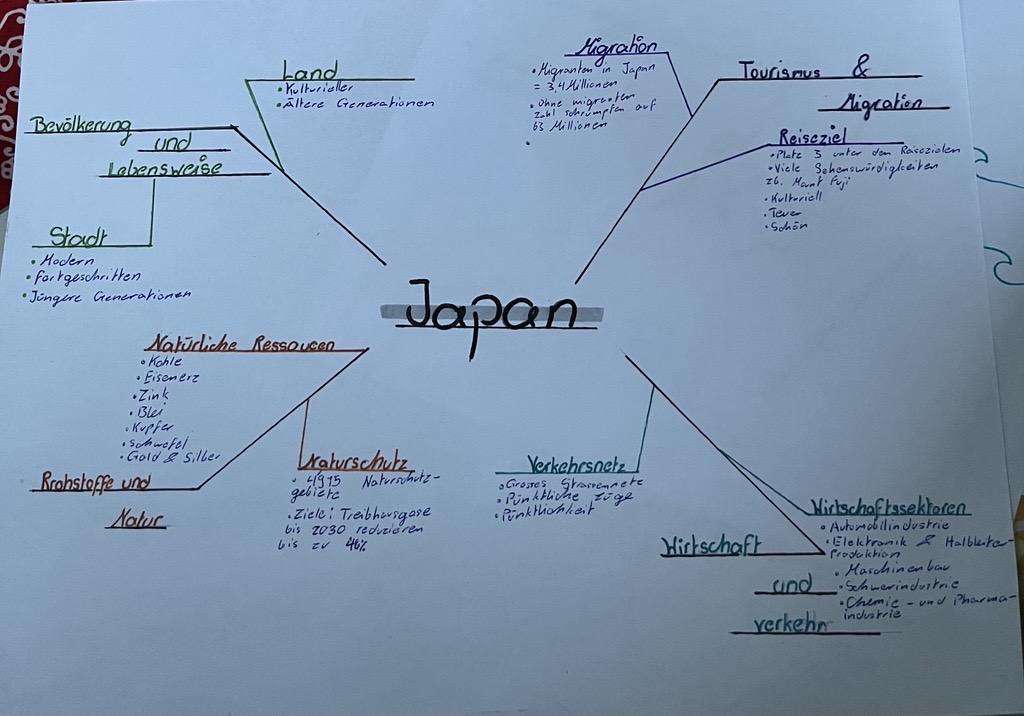 Japan
Bevölkerung
und
Lebensweise
Land
• Kulturieller
• Ältere Generationen
Stadt
• Modern
• Fortgeschritten
• Jüngere Generationen
Migration
• Migranten in Japan
= 3,4 Millionen
• Ohne migranten
zahl schrumpfen auf
63 Millionen
•
Tourismus &
Migration
Reiseziel
• Platz 3 unter den Reisezielen
• Viele Sehenswürdigkeiten
zb. Mount Fuji
• Kulturiell
• Teuer
• Schön
Natürliche Ressoucen
• Kohle
• Eisenerz
• Zink
• Blei
• Kupfer
• Schwefel
• Gold & Silber
Rrohstoffe und
Natur
Naturschutz
• 4915 Naturschutz-
gebiete
• Ziele: Treibhausgase
bis 2030 reduzieren
bis zu 46%
Verkehrsnetz
• Grosses Strassennetz
• Pünktliche züge
• Pünktlichkeit
Wirtschaft
und
verkehr
Wirtschaftssektoren
• Automobilindustrie
• Elektronik & Halbleiter-
Produktion
• Maschinenbau
• Schwerindustrie
• Chemie- und Pharma-
industrie